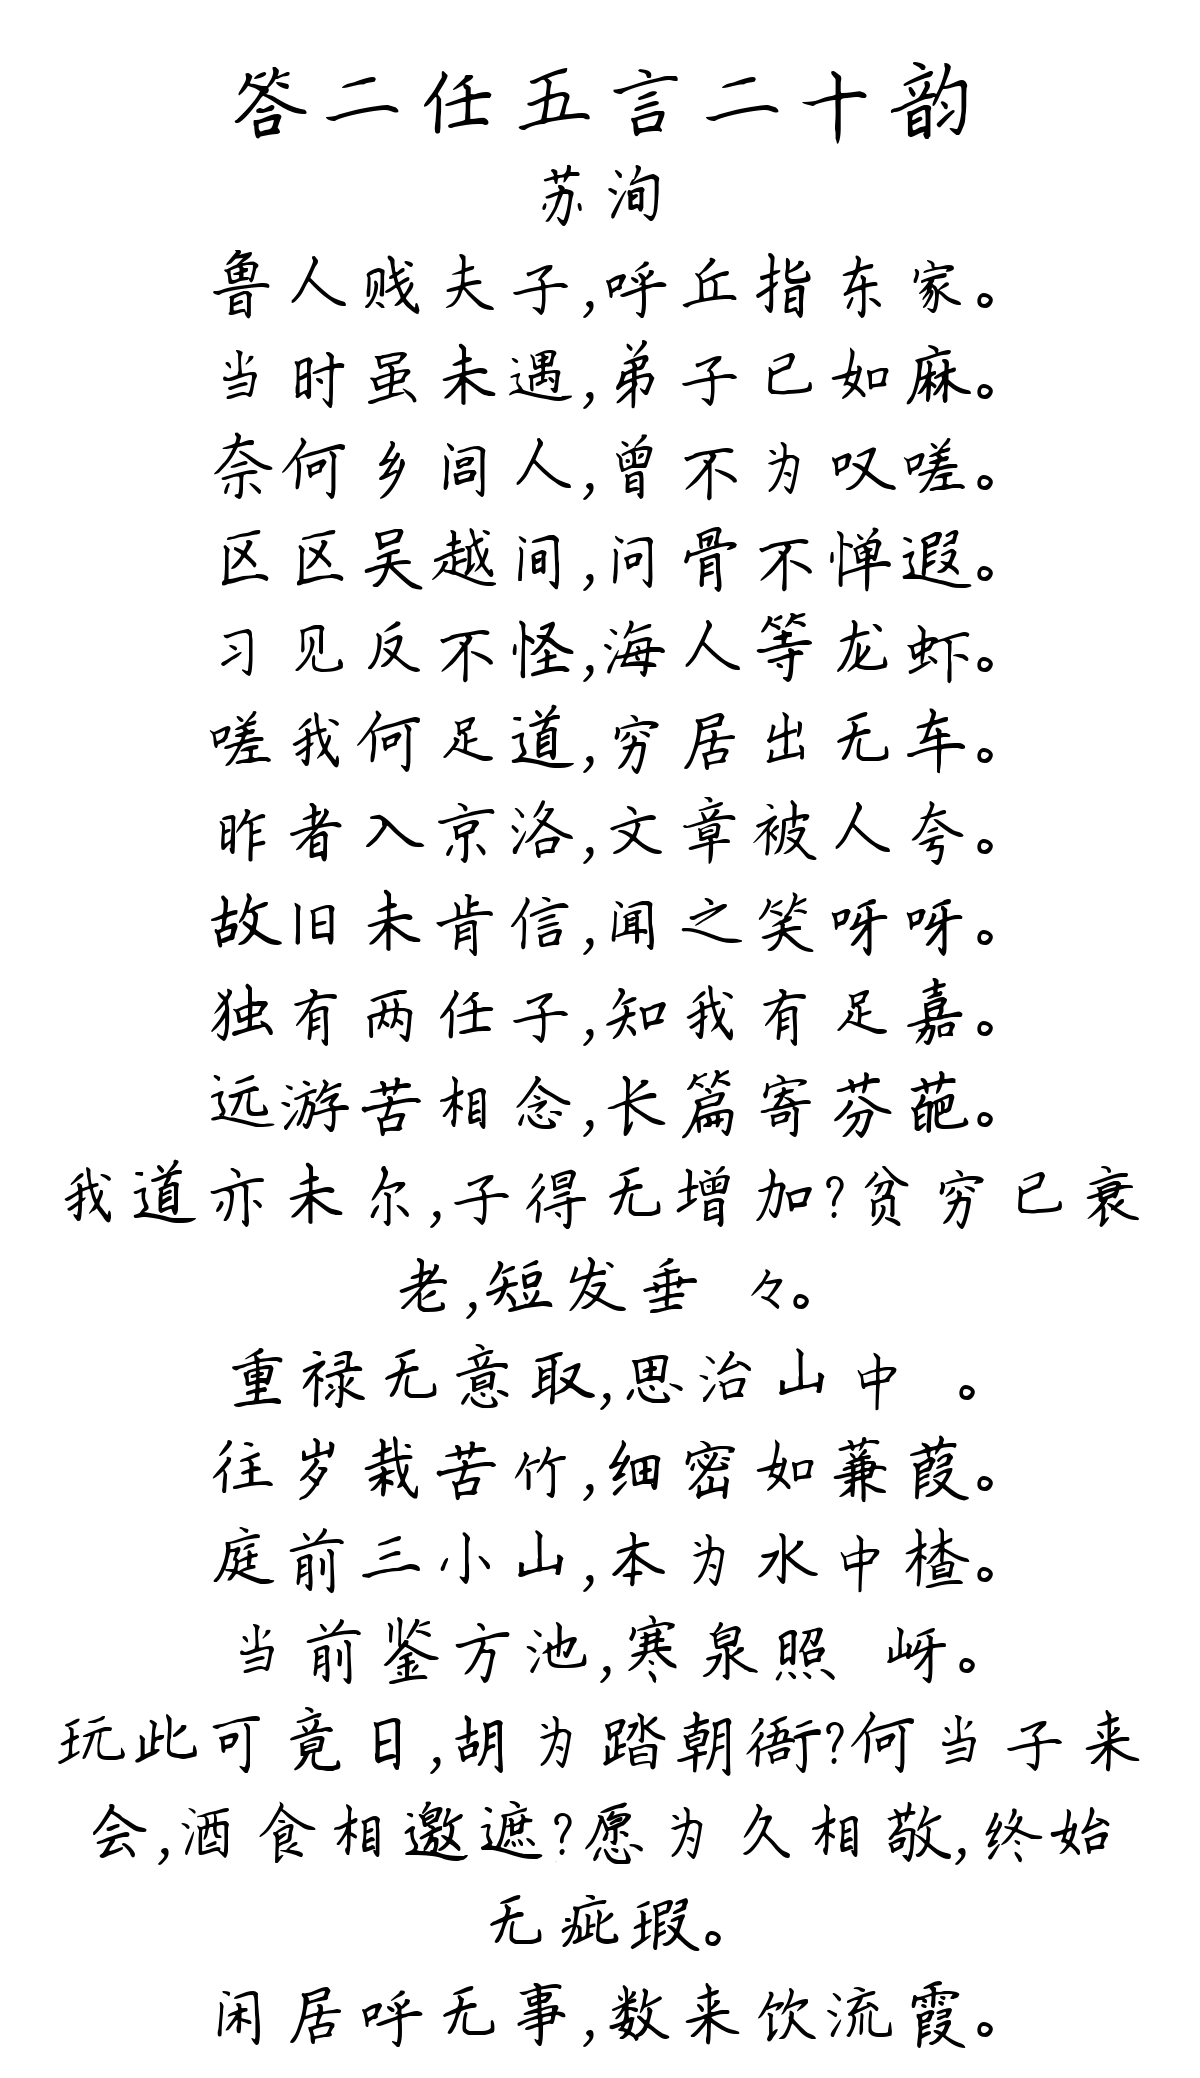 答二任五言二十韵
苏洵
鲁人贱夫子,呼丘指东家。
当时虽未遇,弟子已如麻。
奈何乡闾人,曾不为叹嗟。
区区吴越间,问骨不惮遐。
习见反不怪,海人等龙虾。
嗟我何足道,穷居出无车。
昨者入京洛,文章被人夸。
故旧未肯信,闻之笑呀呀。
独有两任子,知我有足嘉。
远游苦相念,长篇寄芬葩。
我道亦未尔,子得无增加?贫穷已衰
老,短发垂 々。
重禄无意取,思治山中 。
往岁栽苦竹,细密如蒹葭。
庭前三小山,本为水中楂。
当前鉴方池,寒泉照 岈。
玩此可竟日,胡为踏朝衙?何当子来
会,酒食相邀遮?愿为久相敬,终始
无疵瑕。
闲居呼无事,数来饮流霞。